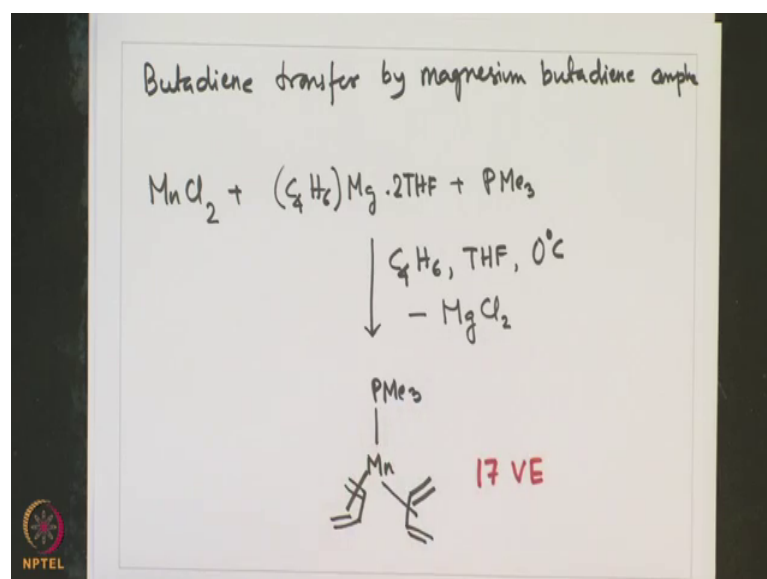 Butadiene transfer by magnesium butadiene
MnCl₂ + (C₄H₆)Mg.2THF + PMe₃
C₄H₆, THF, 0°C
- MgCl₂
PMe₃
Mn
17 VE
NPTEL